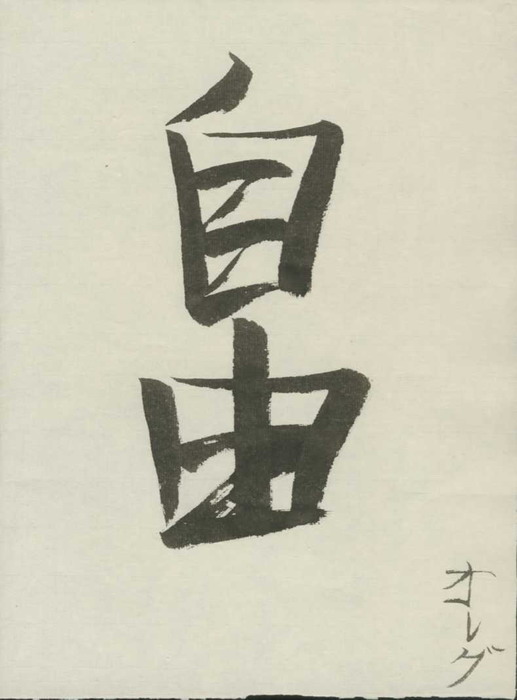 自由
オレグ